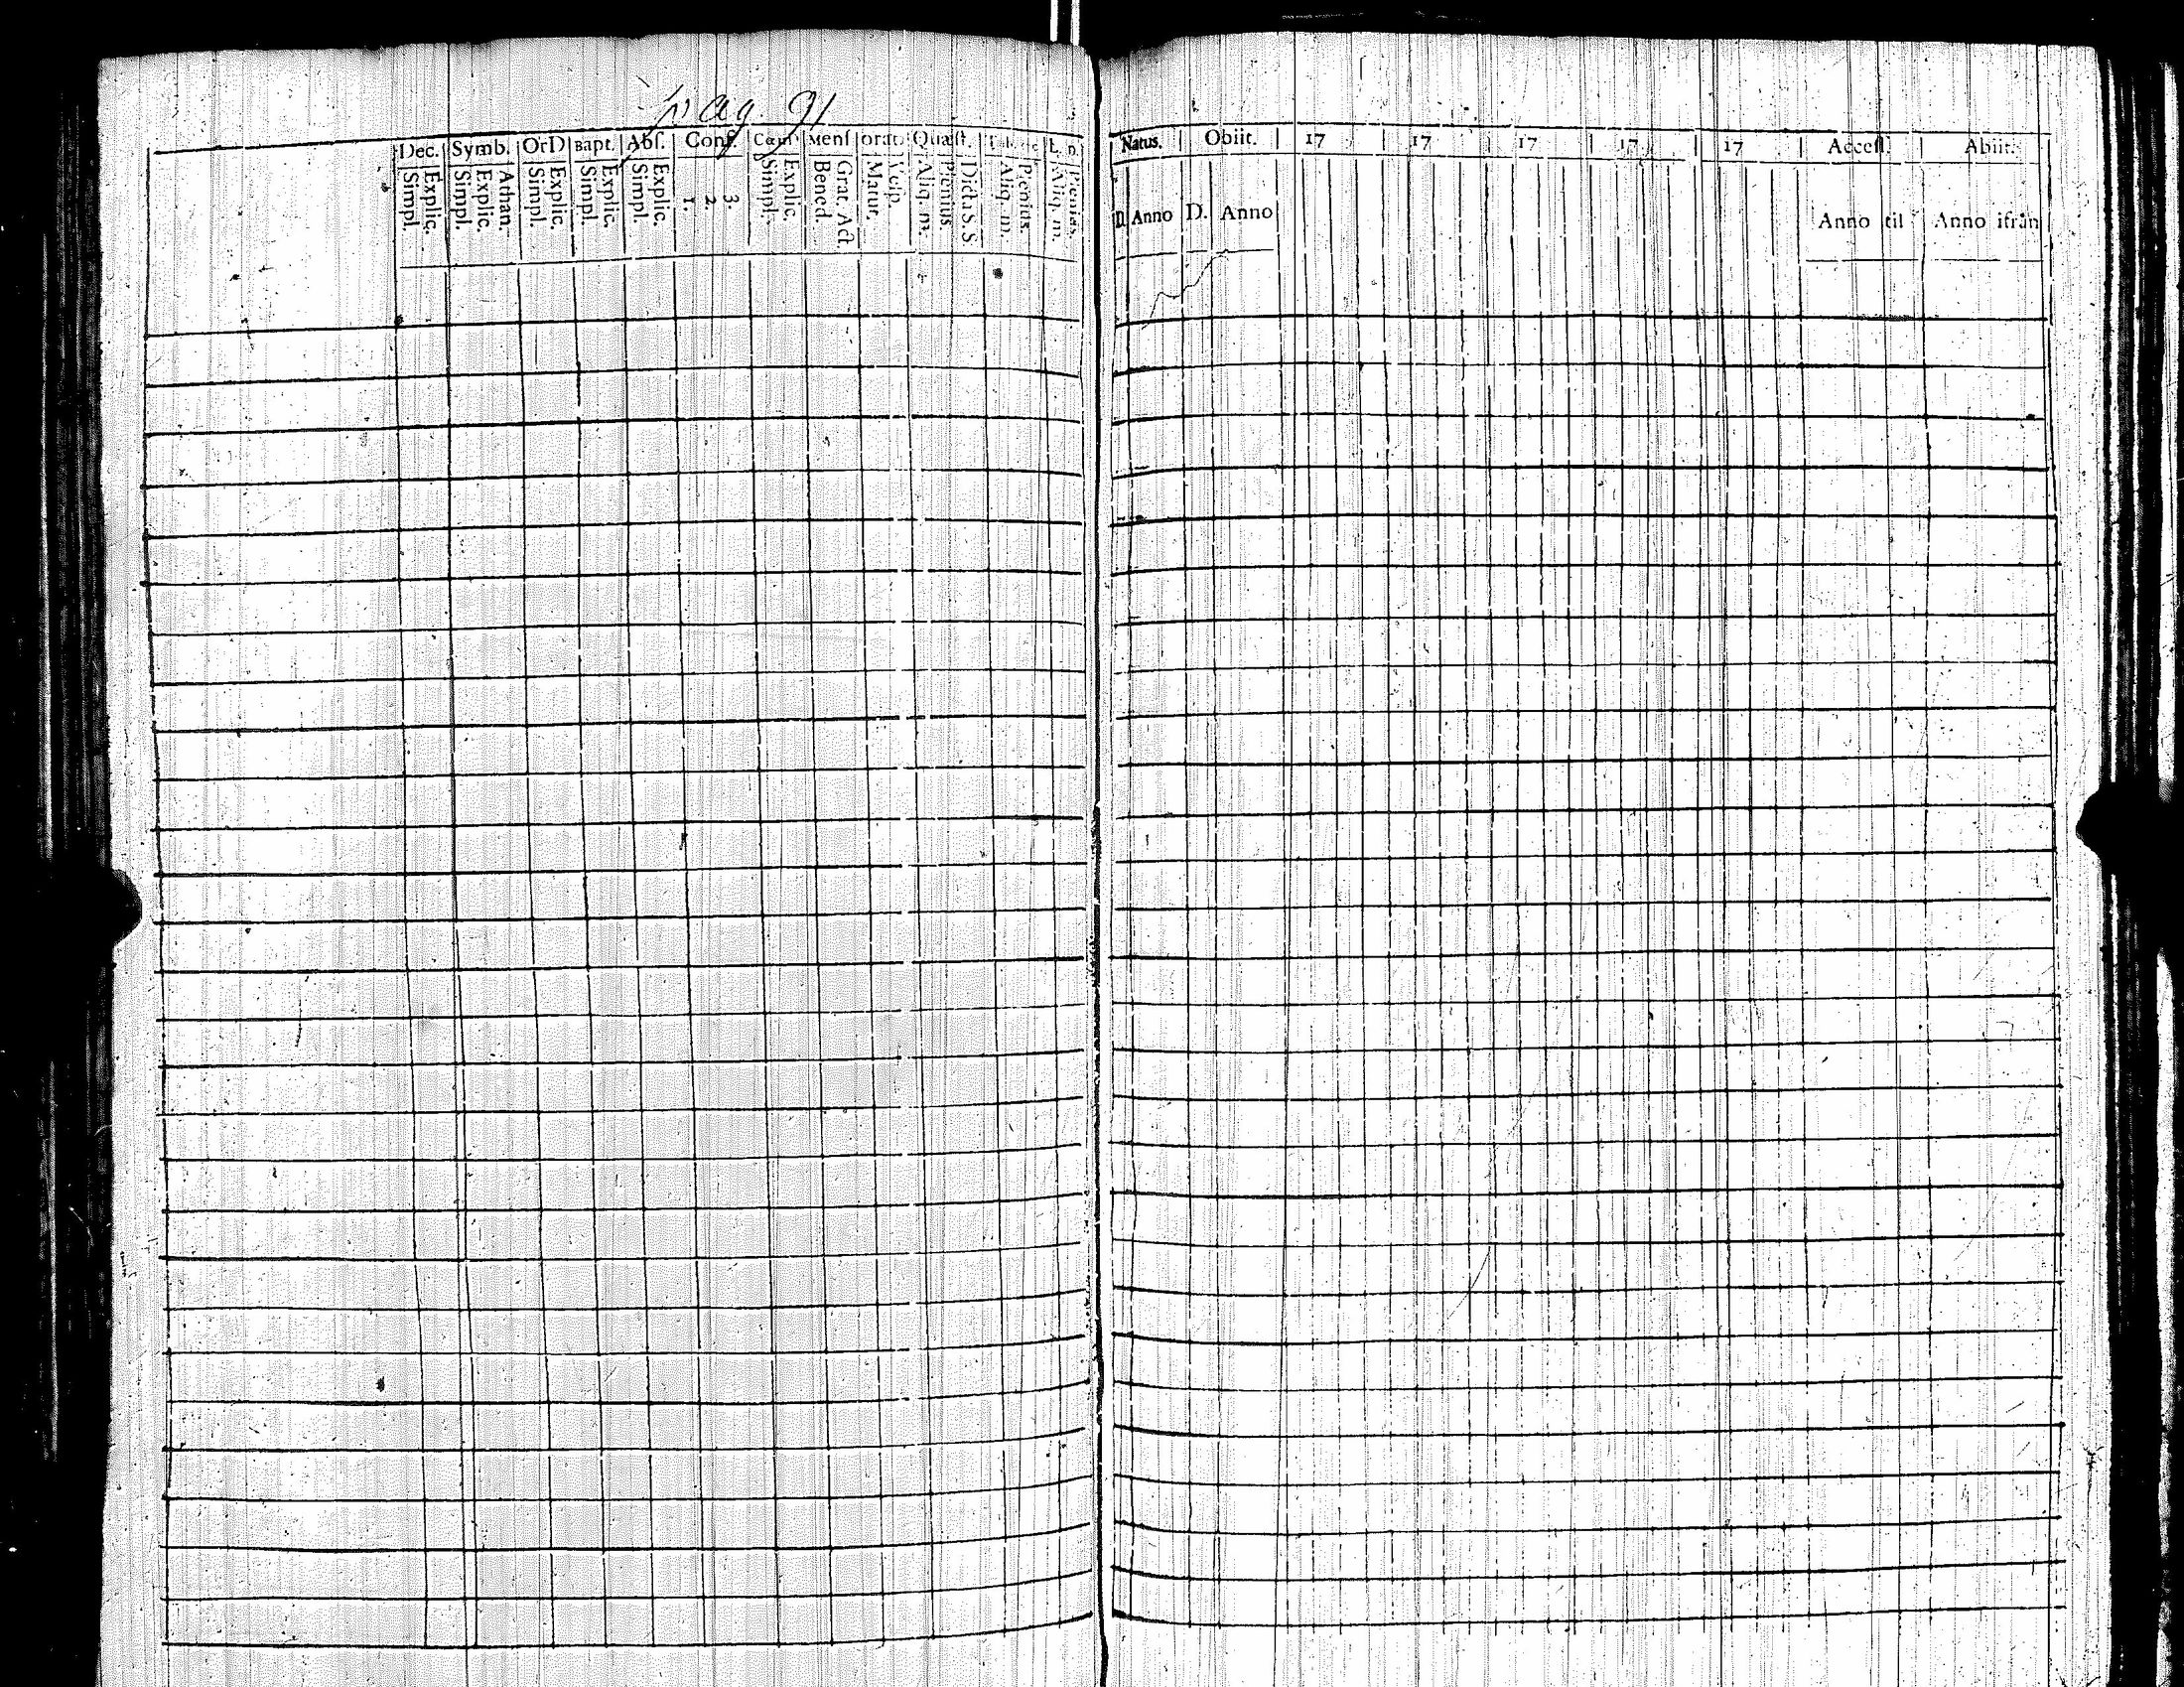 pag. 91
Dec. Symb. OrD Bapt. Abſ. Conf. Cœn Menſ orat. Quæſt. L. p.
Explic. Simpl. Athan. Explic. Simpl. Explic. Simpl. Explic. Simpl. Explic. Simpl. 3. 2. 1. Explic. Simpl. Grat. Act. Bened. Veſp. Matut. Dicta S. S Plenius Aliq. m. Plenius. Aliq. m. Plenius. Aliq. m.
Natus. Obiit. 17 17 17 17 17 Acceſſ. Abiit.
D. Anno D. Anno Anno til Anno ifrån